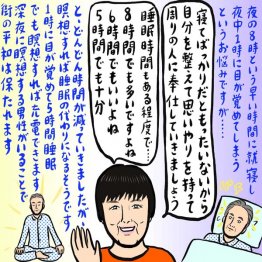 夜の8時という早い時間に就寝し
夜中1時に目が覚めてしまう
というお悩みですが……
寝てばっかりだともったいないから
自分を整えて思いやりを持って
周りの人に奉仕していきましょう
睡眠時間もある程度で…
8時間でも多いですよね
6時間でもいいよね
5時間でも十分
と、どんどん時間が減っていきましたが、
瞑想すれば睡眠の代わりになるそうです
1時に目が覚めて5時間睡眠
でも瞑想すれば充電できます
深夜に瞑想する男性がいることで
街の平和は保たれます